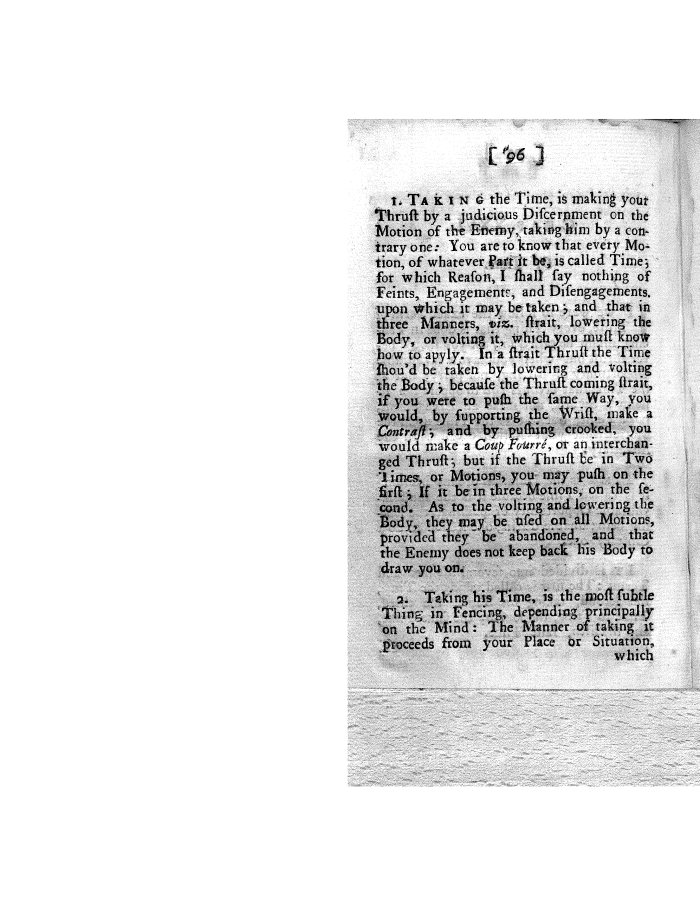 [ 96 ]
1. TAKING the Time, is making your
Thruſt by a judicious Diſcernment on the
Motion of the Enemy, taking him by a con-
trary one: You are to know that every Mo-
tion, of whatever Part it be, is called Time;
for which Reaſon, I ſhall ſay nothing of
Feints, Engagements, and Diſengagements.
upon which it may be taken; and that in
three Manners, viz. ſtrait, lowering the
Body, or volting it, which you muſt know
how to apyly. In a ſtrait Thruſt the Time
ſhou'd be taken by lowering and volting
the Body; becauſe the Thruſt coming ſtrait,
if you were to puſh the ſame Way, you
would, by ſupporting the Wriſt, make a
Contraſt; and by puſhing crooked, you
would make a Coup Fourré, or an interchan-
ged Thruſt; but if the Thruſt be in Two
Times, or Motions, you may puſh on the
firſt; If it be in three Motions, on the ſe-
cond. As to the volting and lowering the
Body, they may be uſed on all Motions,
provided they be abandoned, and that
the Enemy does not keep back his Body to
draw you on.
2. Taking his Time, is the moſt ſubtle
Thing in Fencing, depending principally
on the Mind: The Manner of taking it
proceeds from your Place or Situation,
which